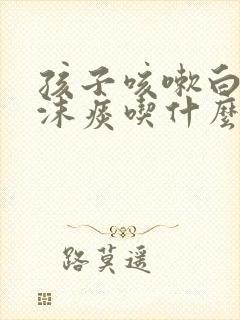 孩子咳嗽白
沫痰喫什麼
路莫遥